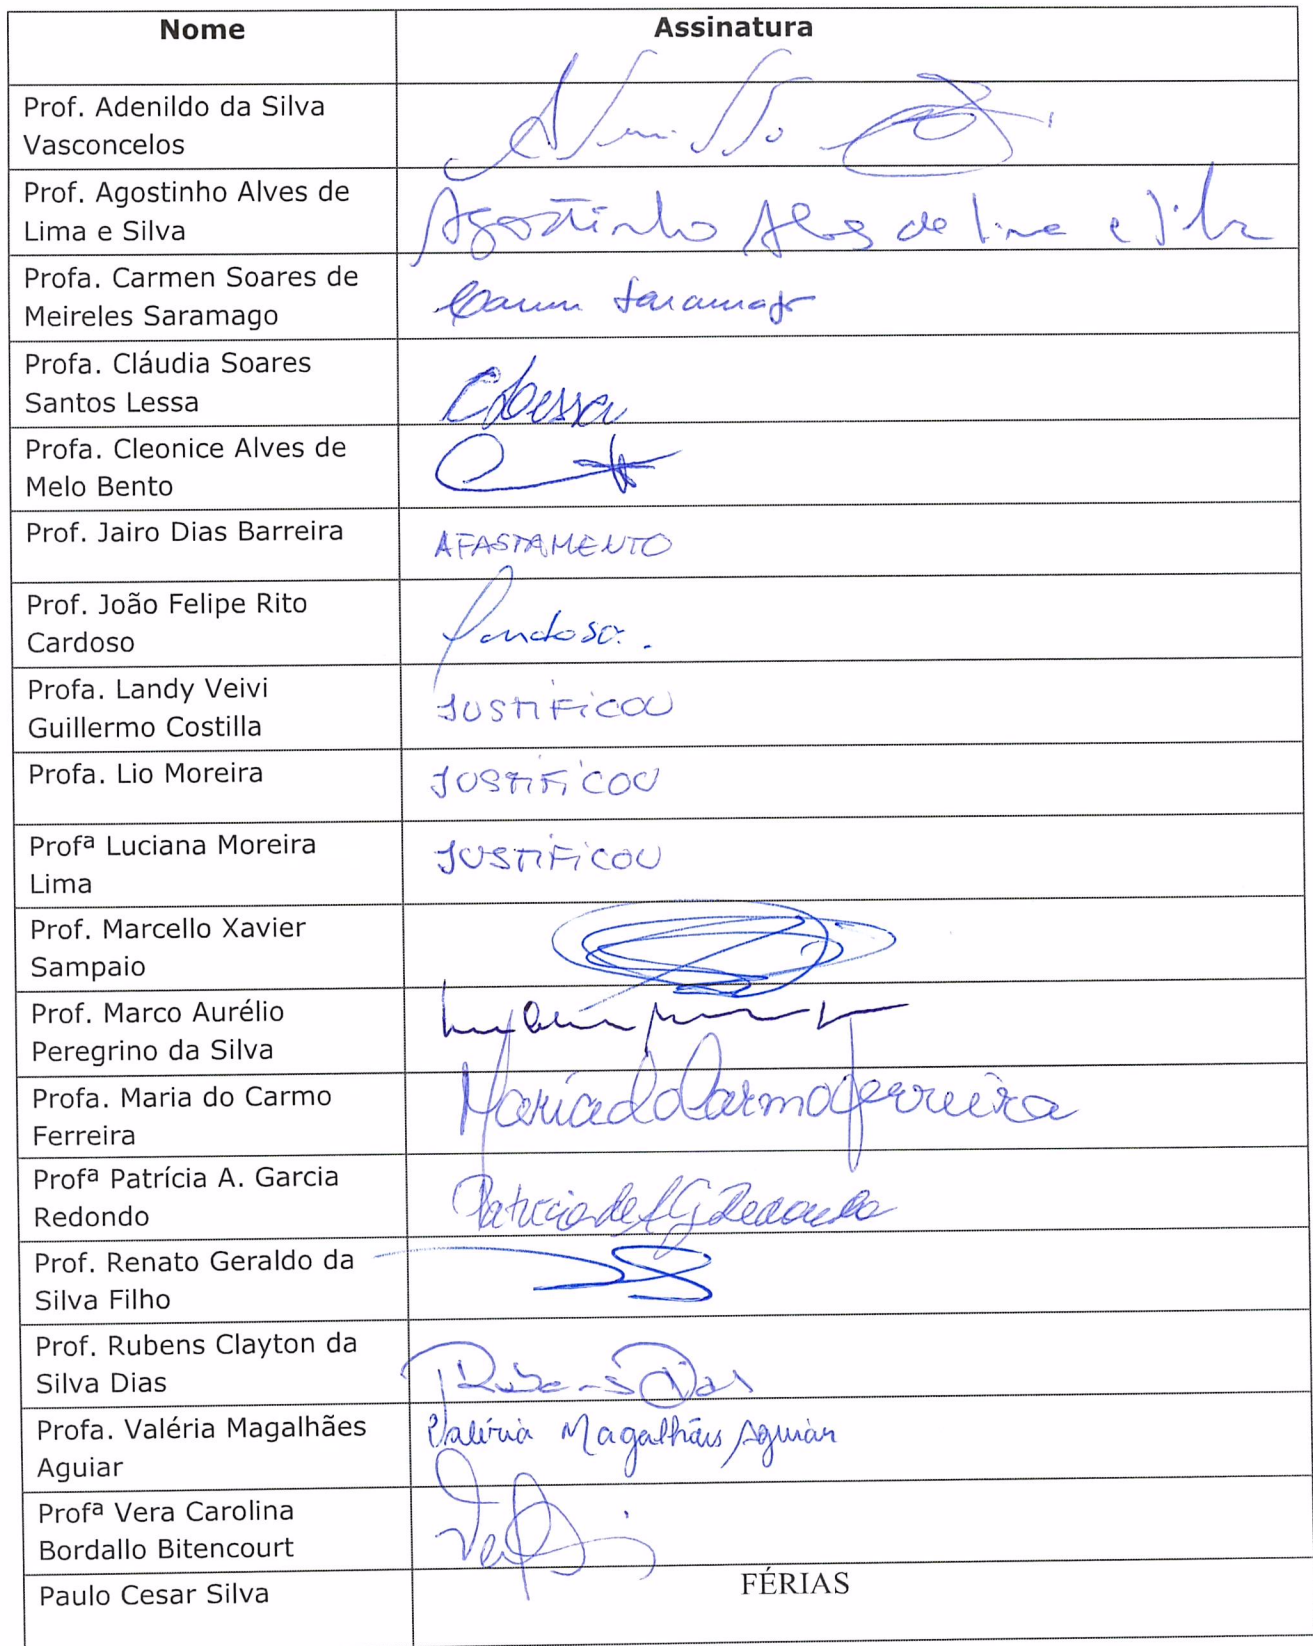 Nome Assinatura
Prof. Adenildo da Silva
Vasconcelos
Prof. Agostinho Alves de
Lima e Silva
Agostinho Alves de Lima e Silva
Profa. Carmen Soares de
Meireles Saramago
Carmen Saramago
Profa. Cláudia Soares
Santos Lessa
CLessa
Profa. Cleonice Alves de
Melo Bento
Prof. Jairo Dias Barreira
AFASTAMENTO
Prof. João Felipe Rito
Cardoso
Cardoso.
Profa. Landy Veivi
Guillermo Costilla
JUSTIFICOU
Profa. Lio Moreira
JUSTIFICOU
Profª Luciana Moreira
Lima
JUSTIFICOU
Prof. Marcello Xavier
Sampaio
Prof. Marco Aurélio
Peregrino da Silva
Profa. Maria do Carmo
Ferreira
Maria do Carmo Ferreira
Profª Patrícia A. Garcia
Redondo
Patricia de A G Redondo
Prof. Renato Geraldo da
Silva Filho
Prof. Rubens Clayton da
Silva Dias
Rubens Dias
Profa. Valéria Magalhães
Aguiar
Valéria Magalhães Aguiar
Profª Vera Carolina
Bordallo Bitencourt
Paulo Cesar Silva
FÉRIAS